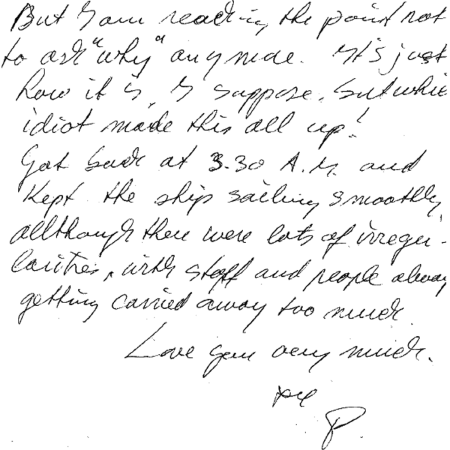 But I am reaching the point not
to ask "why" any more. It's just
how it is, I suppose. but which
idiot made this all up!
Got back at 3.30 A.M. and
Kept the ship sailing smoothly,
allthough there were lots of irregu-
larities, with staff and people always
getting carried away too much.
Love you very much.
P.